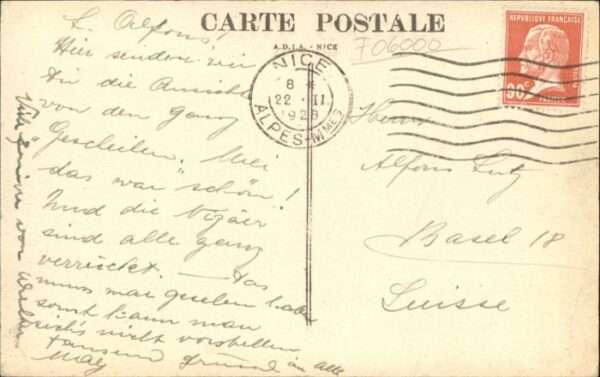 CARTE POSTALE
A.D.I.A. - NICE
F06000
REPUBLIQUE FRANÇAISE
90c
NICE
8 *
22 - II
1928
ALPES-MMES
L. Alfons!
Hier senden wir
Dir die Ansicht
von den ganz
"Gescheiten." Mei
das war "schön"!
Und die Nizäer
sind alle ganz
verrückt. — Das
muss man gesehen haben
sonst kann man
sich's nicht vorstellen
Tausend Grüsse an alle
Viele Grüsse von
Herrn
Alfons Lutz
Basel 18
Suisse